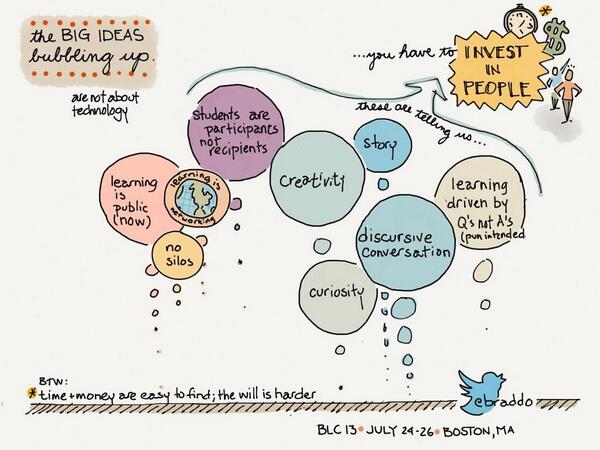 the BIG IDEAS
bubbling up.
are not about
technology
...you have to
INVEST
IN
PEOPLE
*
$
these are telling us...
students are
participants
not
recipients
story
creativity
learning
is
public
(now)
learning is
networking
learning
driven by
Q's not A's
(pun intended
no
silos
discursive
conversation
curiosity
BTW:
* time + money are easy to find; the will is harder
@braddo
BLC 13 • JULY 24-26 • BOSTON, MA